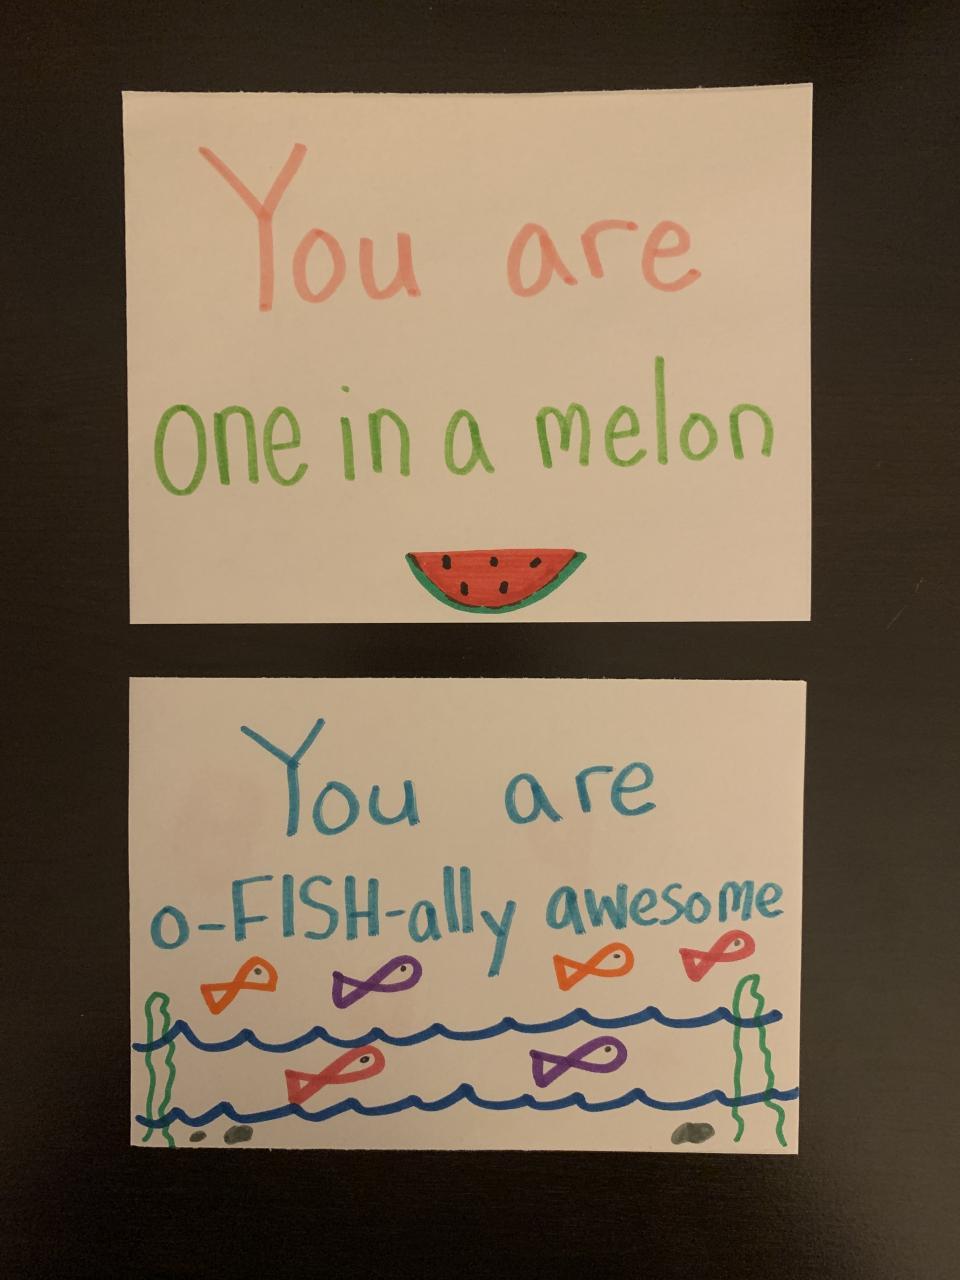 You are
one in a melon
You are
o-FISH-ally awesome